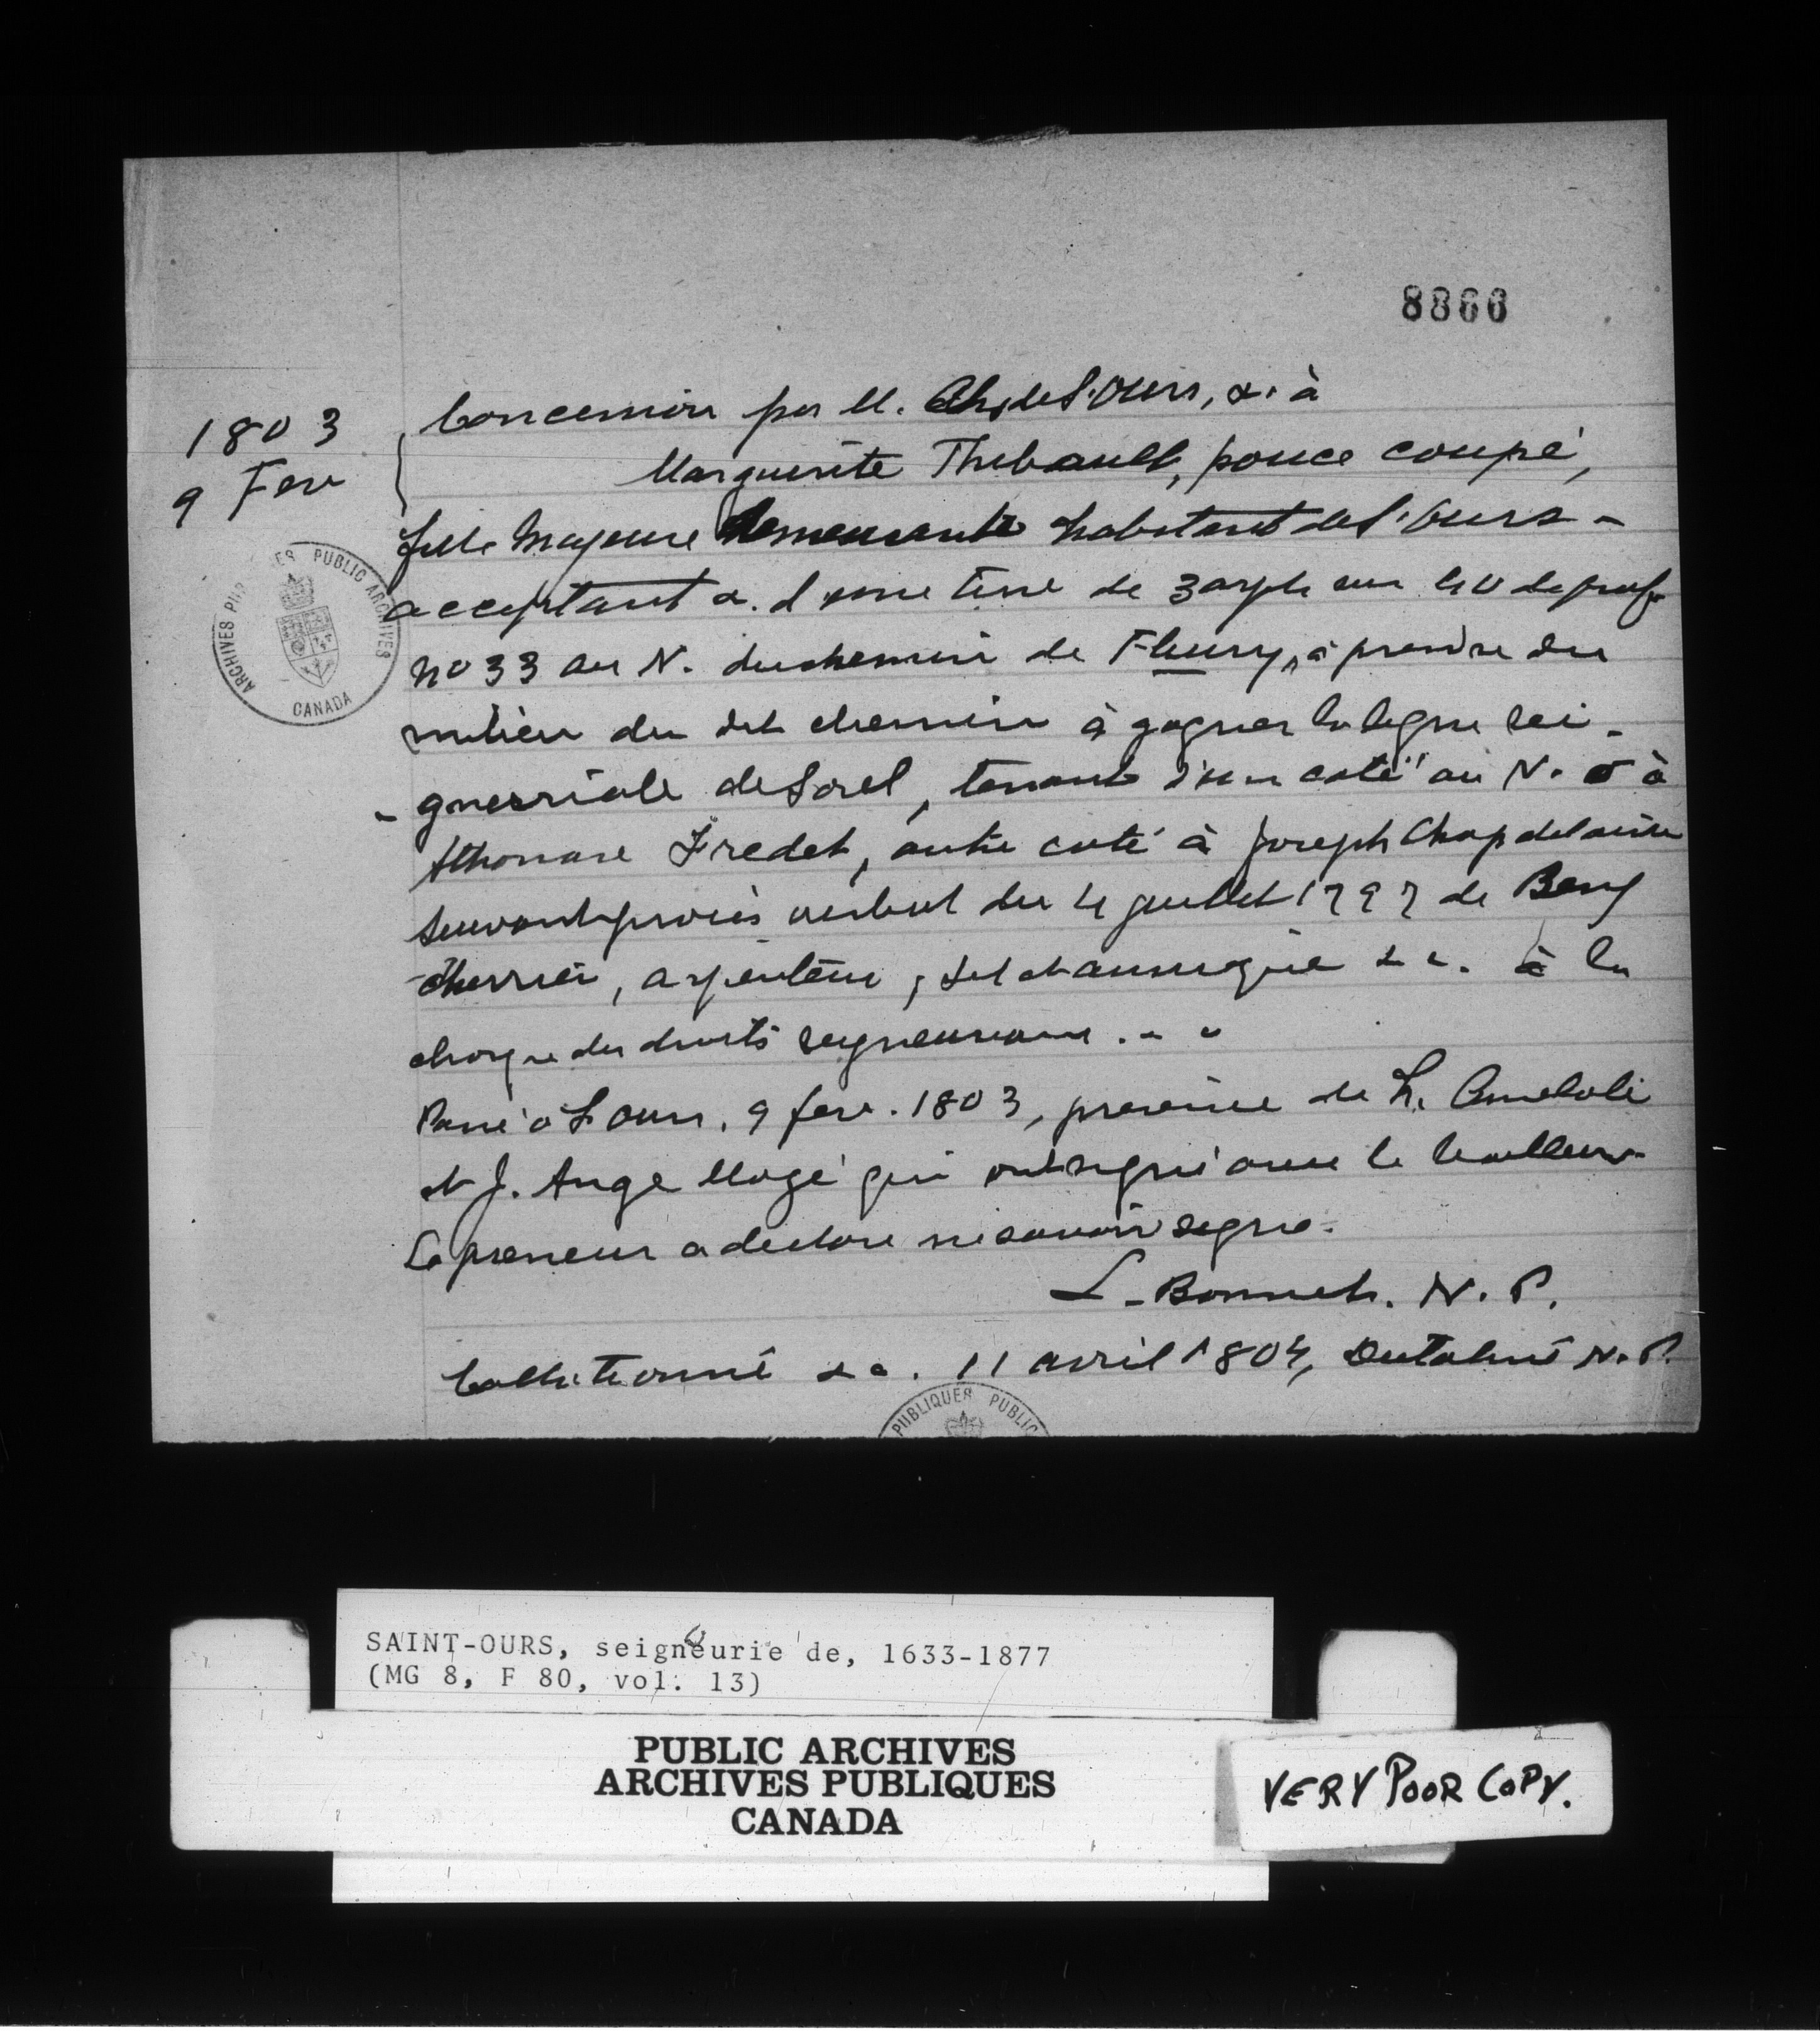 8866
1803
9 Fev
Concession par M. Chs de St. Ours, &. à
Marguerite Thibault, pouce coupé,
fille majeure demeurante habitant de St. Ours -
acceptant &. d'une terre de 3 arpts sur 40 de prof
No 33 au N. du chemin de Fleury, à prendre du
milieu du dit chemin à gagner la ligne sei-
-gneuriale de Sorel, tenant d'un coté au N. O à
Athanase Fredet, autre coté à Joseph Chapdelaine
suivant procès verbal du 4 juillet 1797 de Benj
Cherrier, arpenteur, &c. à la
charge des droits seigneuriaux . - -
Passé à St Ours, 9 fev. 1803, présence de L.
et J. Ange Mogé qui ont signé avec le bailleur
Le preneur a declare ne savoir signe.
L. Bonnet. N. P.
Collationné &c. 11 avril 1804, Dutalmé N. P.
ARCHIVES PUBLIQUES PUBLIC ARCHIVES
CANADA
PUBLIQUES PUBLIC
SAINT-OURS, seigneurie de, 1633-1877
(MG 8, F 80, vol. 13)
PUBLIC ARCHIVES
ARCHIVES PUBLIQUES
CANADA
VERY POOR COPY.